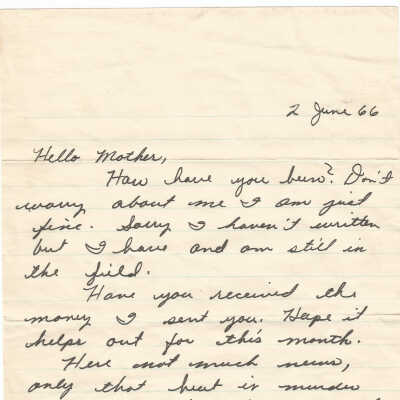 2 June 66
Hello Mother,
How have you been? Don't
worry about me I am just
fine. Sorry I haven't written
but I have and am still in
the field.
Have you received the
money I sent you. Hope it
helps out for this month.
Here not much news,
only that heat is murder